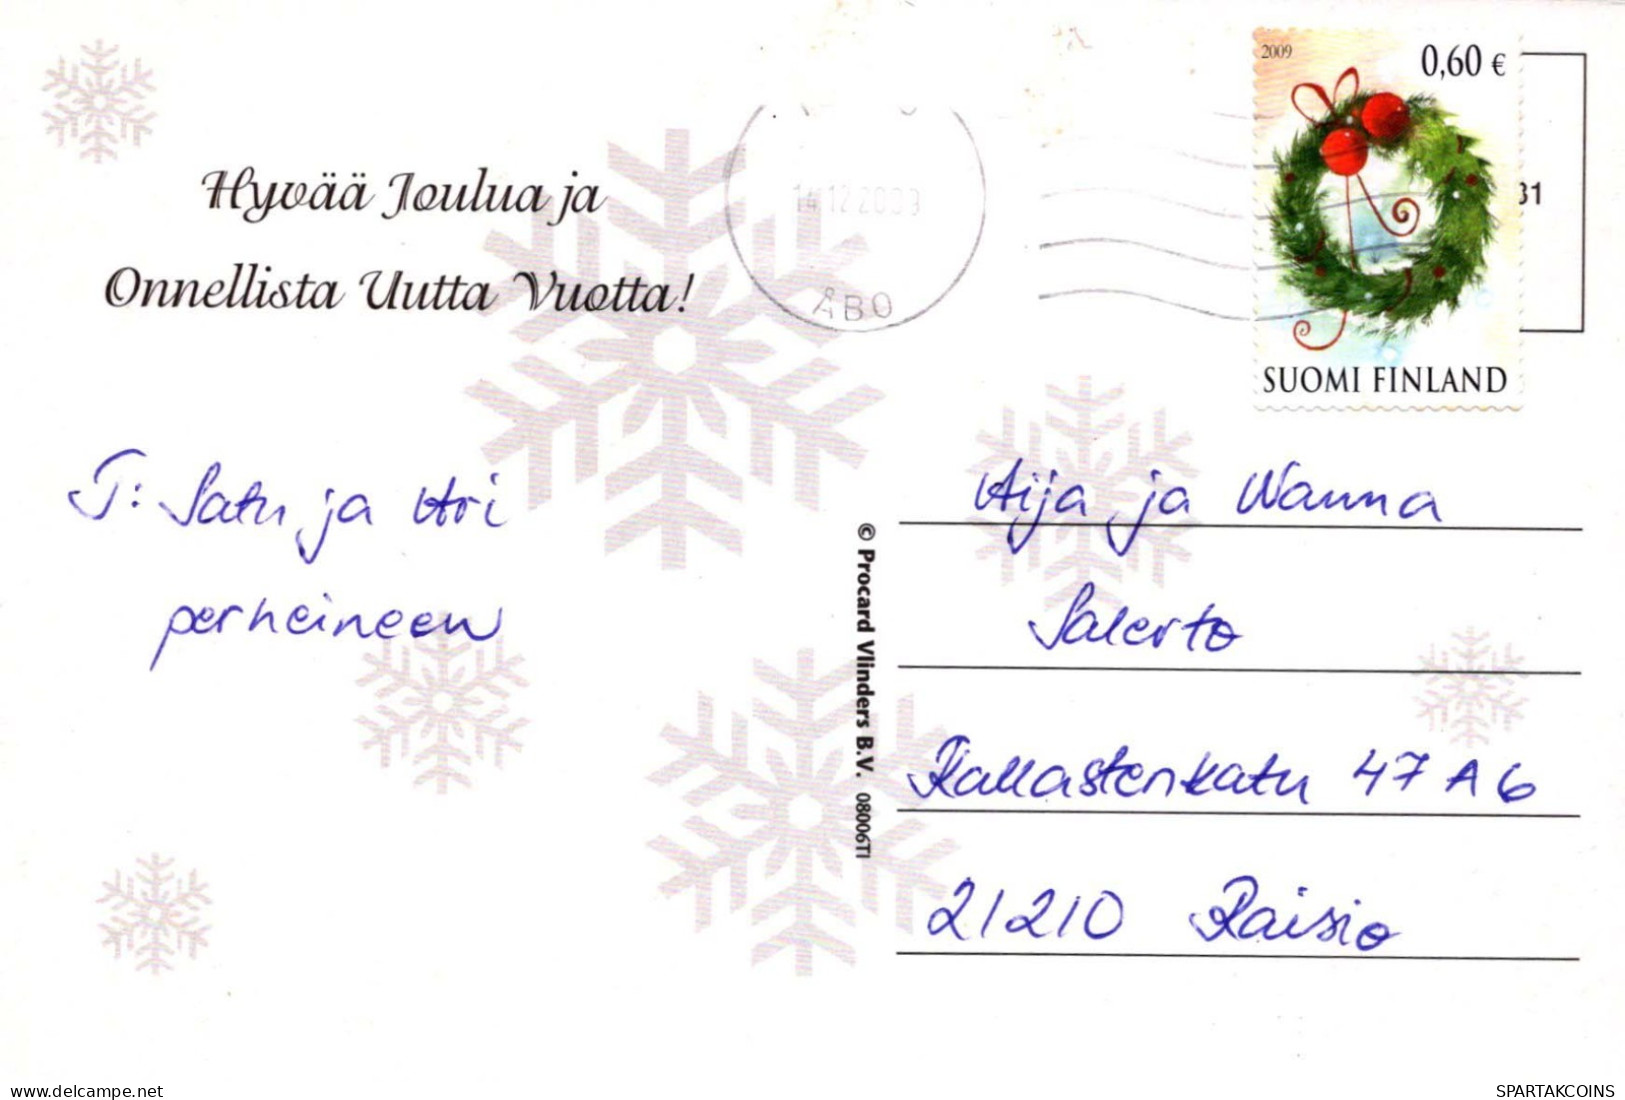 Hyvää Joulua ja
Onnellista Uutta Vuotta!
T: Satu ja Ari
perheineen
14.12.2009
ÅBO
2009
0,60 €
SUOMI FINLAND
31
© Procard Vlinders B.V. 08006TI
Aija ja Nanna
Salerto
Kallastenkatu 47 A 6
21210 Raisio
delcampe.net
SPARTAKCOINS